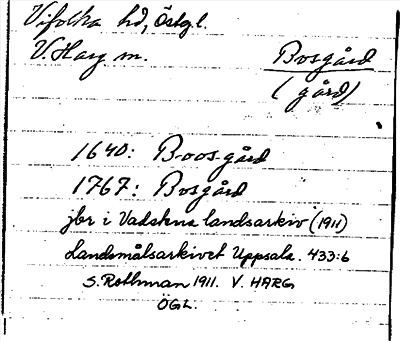 Vifolka hd, Östgl.
V. Harg sn.
Bosgård
(gård)
1640: Boosgård
1767: Bosgård
jbr i Vadstena landsarkiv (1911)
Landsmålsarkivet Uppsala. 433:6
S. Rothman 1911. V. HARG
ÖGL.